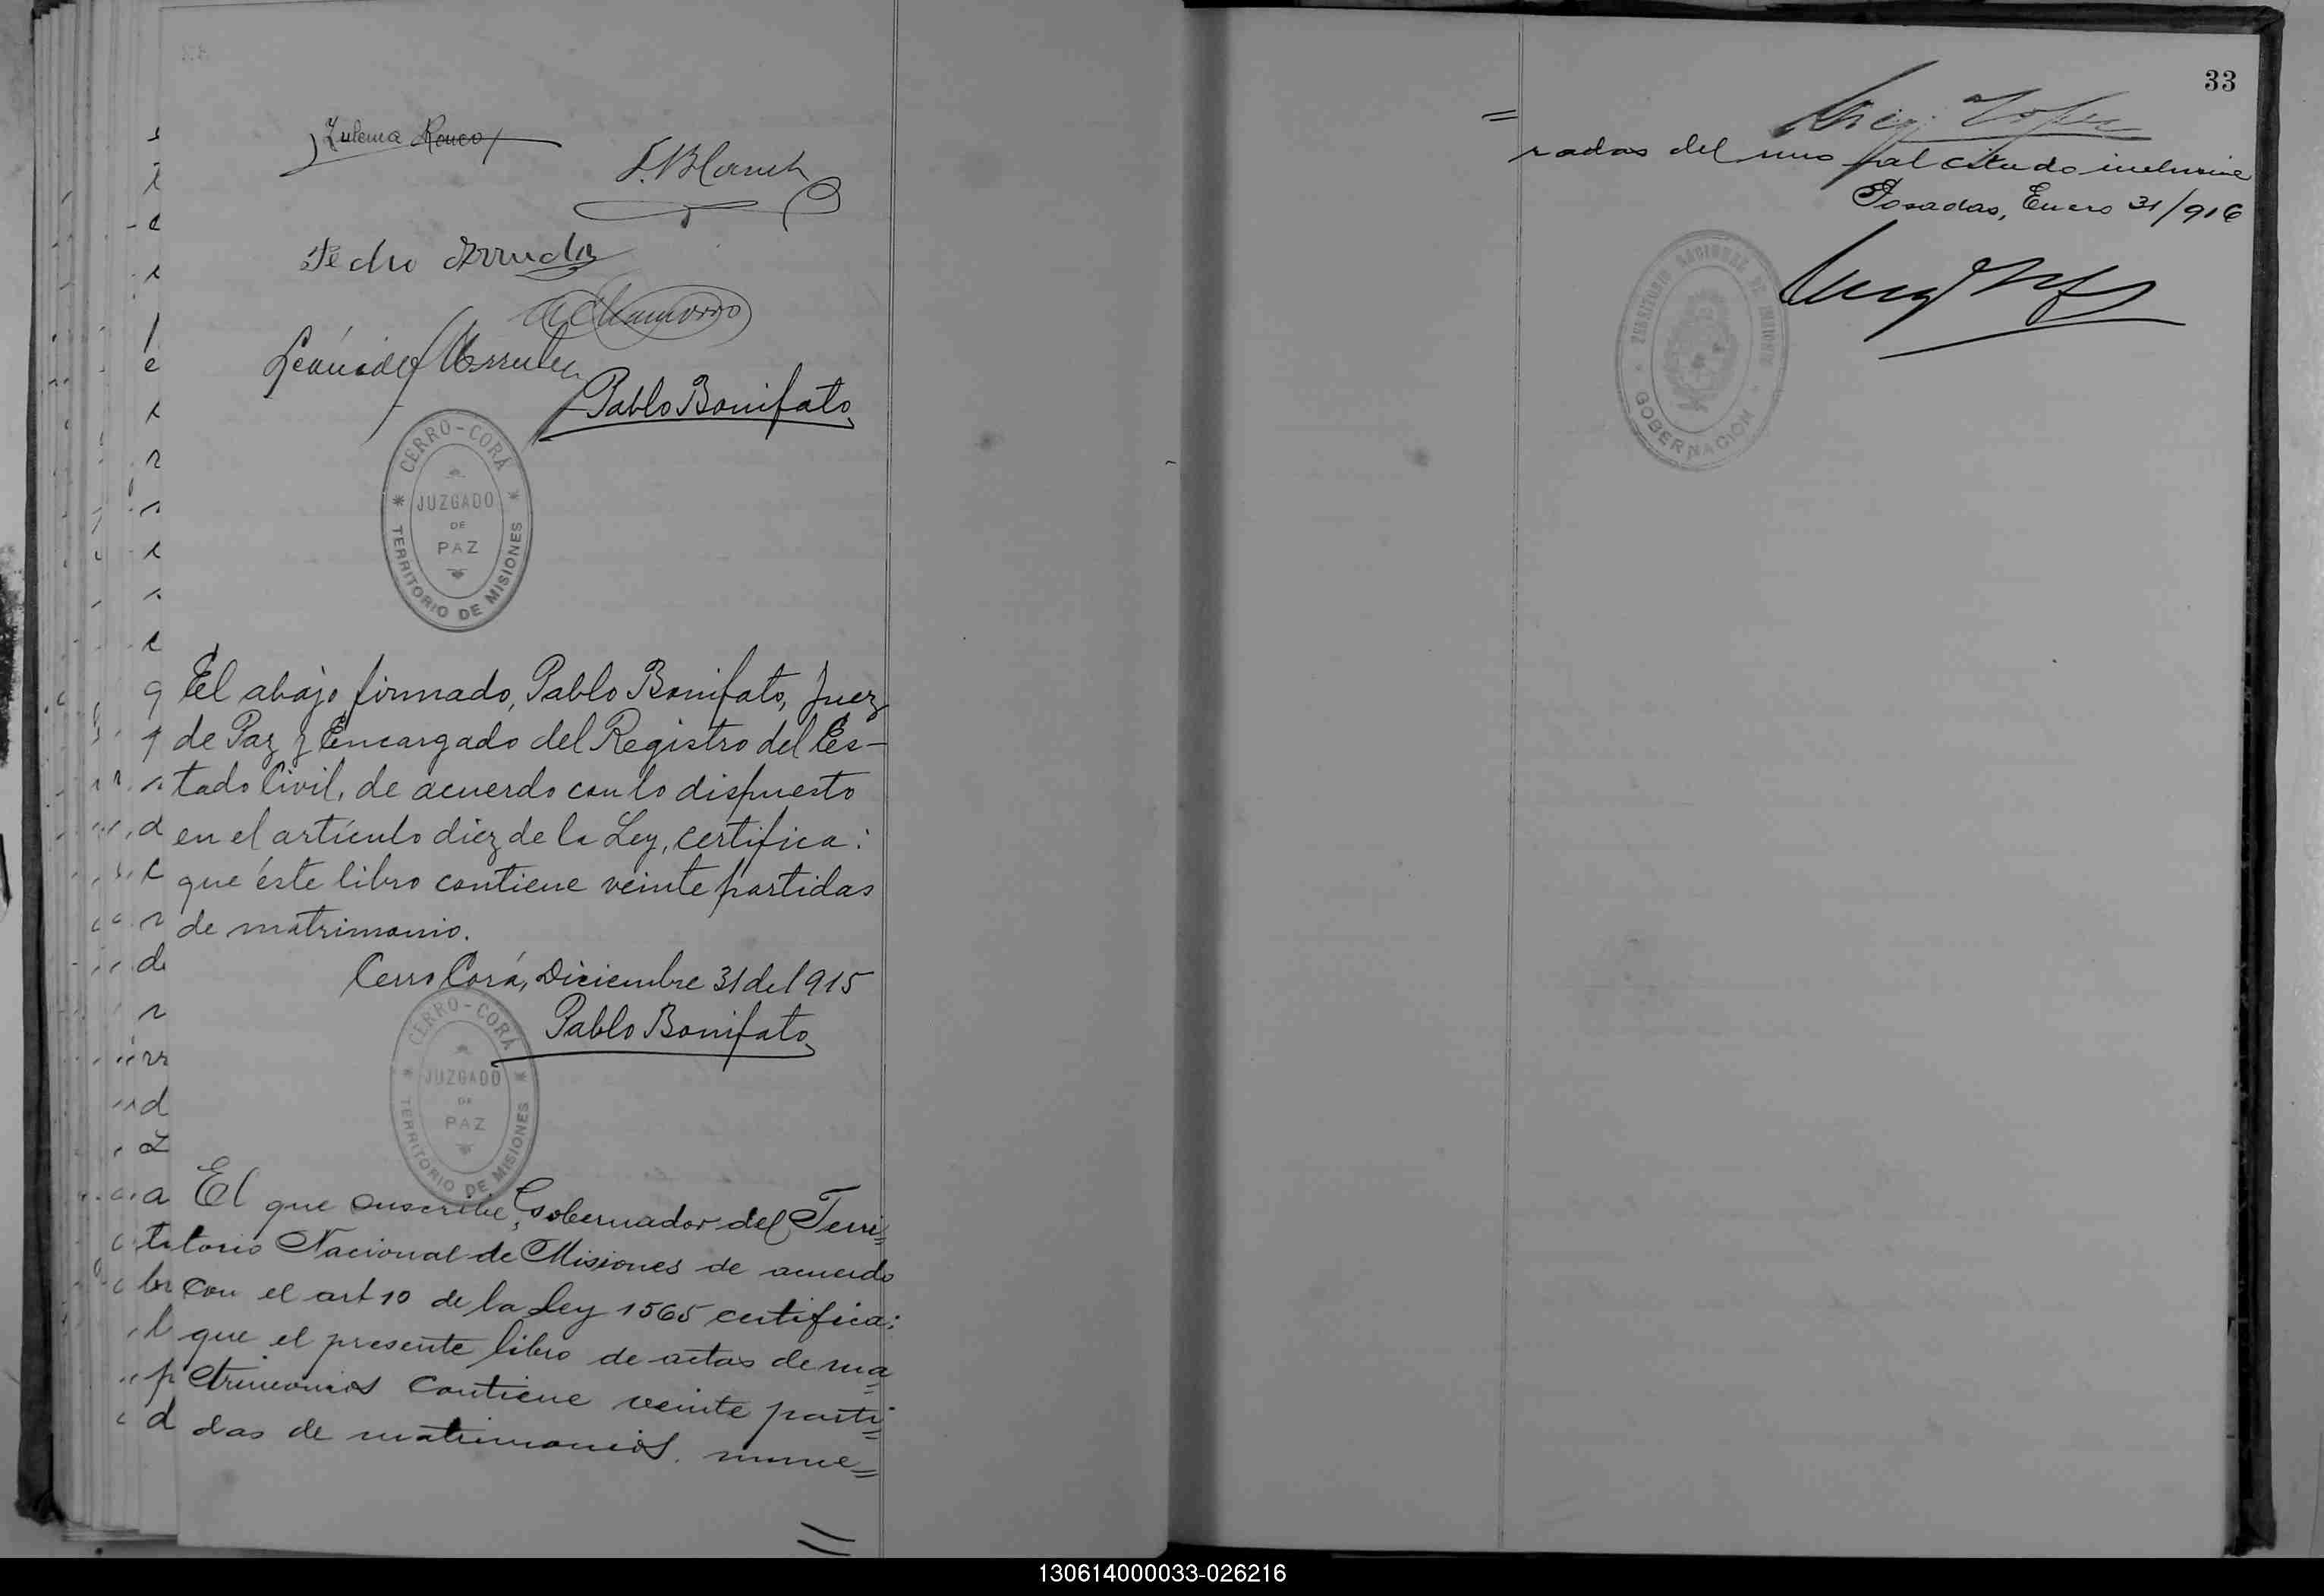 Zulema Ronco
F. Blanch
Pedro Arruda
A Chamorro
Leónidas Arruda
Pablo Bonifato
CERRO-CORÁ
JUZGADO
DE
PAZ
TERRITORIO DE MISIONES
El abajo firmado, Pablo Bonifato, Juez
de Paz y Encargado del Registro del Es-
tado Civil, de acuerdo con lo dispuesto
en el artículo diez de la Ley, certifica:
que éste libro contiene veinte partidas
de matrimonio.
Cerro Corá, Diciembre 31 de 1915
Pablo Bonifato
CERRO-CORÁ
JUZGADO
DE
PAZ
TERRITORIO DE MISIONES
El que suscribe, Gobernador del Terri=
torio Nacional de Misiones de acuerdo
con el art 10 de la Ley 1565 certifica:
que el presente libro de actas de ma=
trimonios contiene veinte parti=
das de matrimonios, nume=
33
radas del uno al citado inclusive
Posadas, Enero 31/916
TERRITORIO NACIONAL DE MISIONES
GOBERNACION
130614000033-026216